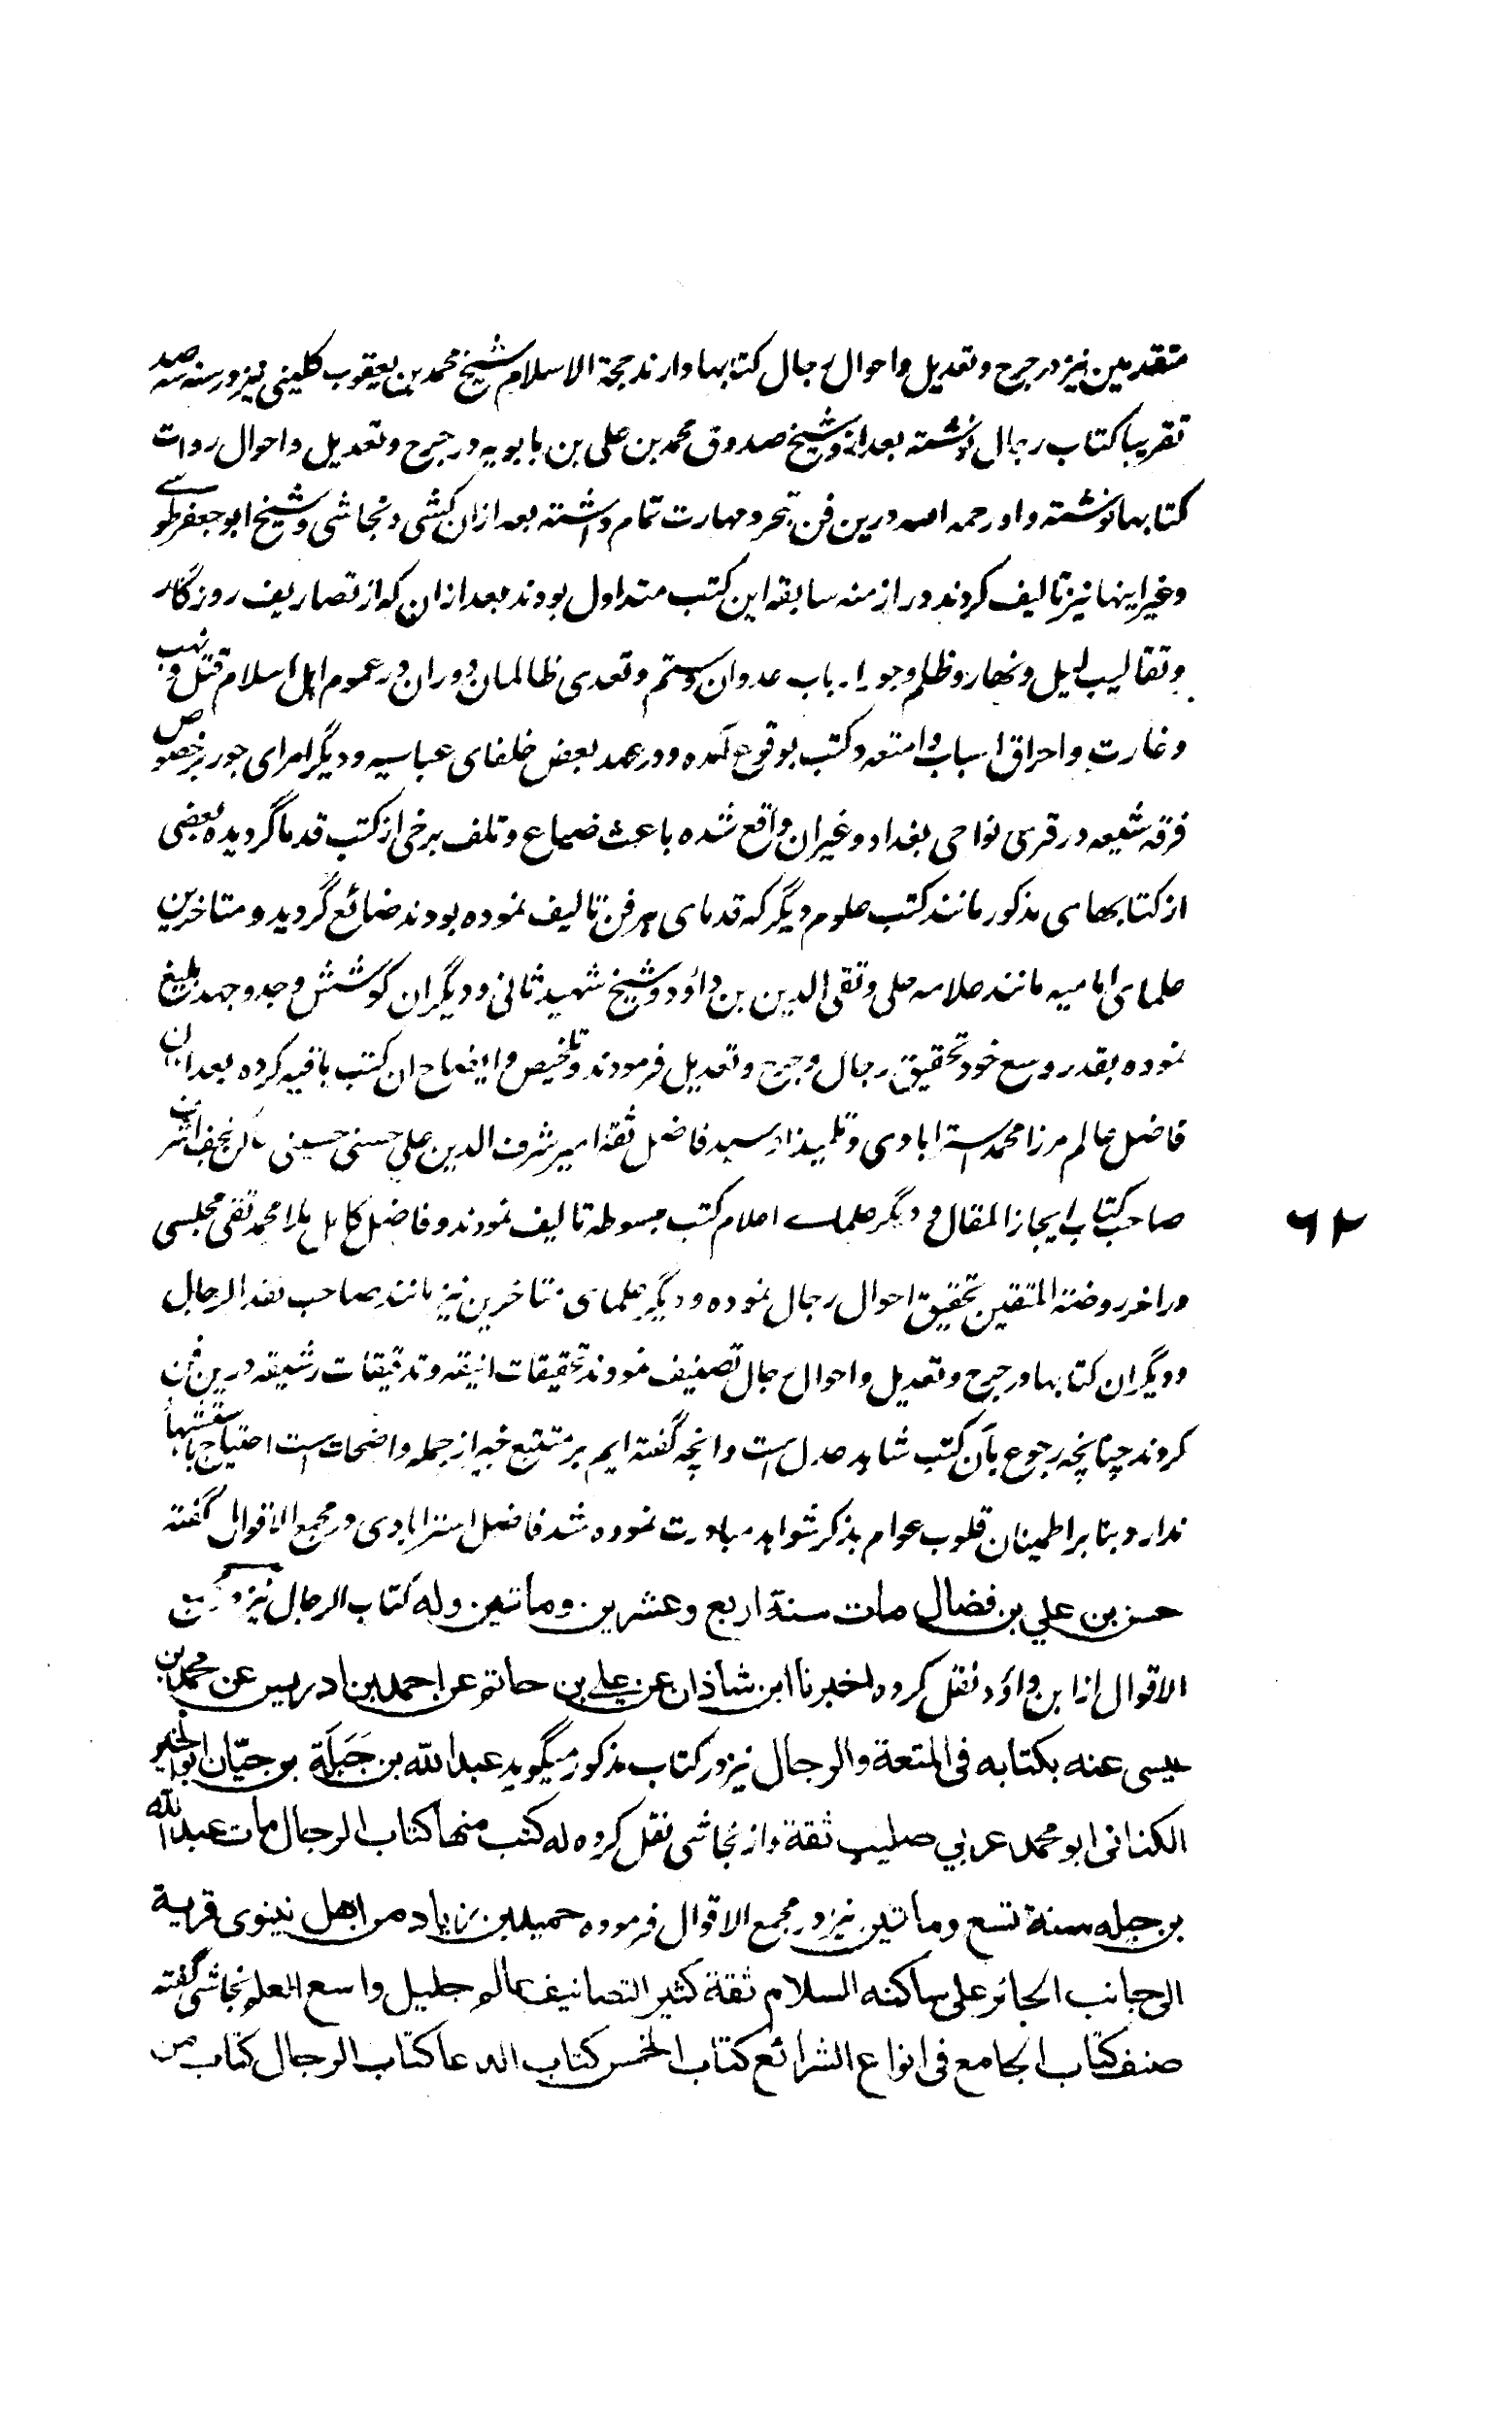 متقدمین نیز در جرح و تعدیل و احوال رجال کتابها دارند حجة الاسلام شیخ محمد بن یعقوب کلینی نیز در سنه سه صد
تقریبا کتاب رجال نوشته بعد ازو شیخ صدوق محمد بن علی بن بابویه در جرح و تعدیل و احوال روات
کتابها نوشته و او رحمه الله درین فن تبحر و مهارت تمام داشته بعد ازان کشی و نجاشی و شیخ ابو جعفر طوسے
و غیر اینها نیز تالیف کردند در ازمنه سابقه این کتب متداول بودند بعد ازان که از تصاریف روزگار
و تقالیب لیل و نهار و ظلم و جور ارباب عدوان و ستم و تعدی ظالمان دوران در عموم اهل اسلام قتل و نهب
و غارت و احراق اسباب و امتعه و کتب بوقوع آمده و در عهد بعض خلفای عباسیه و دیگر امرای جور بر خصوص
فرقه شیعه در قری نواحی بغداد و غیران واقع شده باعث ضیاع و تلف برخی از کتب قدما گردیده بعضی
از کتابهای مذکور مانند کتب علوم دیگر که قدمای هر فن تالیف نموده بودند ضائع گردید و متاخرین
علمای امامیه مانند علامه حلی و تقی الدین بن داؤد و شیخ شهید ثانی و دیگران کوشش و جد و جهد بلیغ
نموده بقدر وسع خود تحقیق رجال و جرح و تعدیل فرمودند و تلخیص و ایضاح ان کتب باقیه کرده بعد ازان
فاضل عالم مرزا محمد استرابادی و تلمیذ او سید فاضل ثقه امیر شرف الدین علی حسنی حسینی ساکن نجف اشرف
صاحب کتاب ایجاز المقال و دیگر علماے اعلام کتب مبسوطه تالیف نمودند و فاضل کامل ملا محمد تقی مجلسی
در اخر روضة المتقین تحقیق احوال رجال نموده و دیگر علمای متاخرین نیز مانند صاحب نقد الرجال
و دیگران کتابها در جرح و تعدیل و احوال رجال تصنیف نمودند تحقیقات انیقه و تدقیقات رشیقه درین فن
کردند چنانچه رجوع بآن کتب شاهد عدل است و انچه گفته ایم بر متتبع خبیر از جمله واضحات است احتیاج باستشهاد
ندارد بنابر اطمینان قلوب عوام بذکر شواهد مبادرت نموده شد فاضل استرابادی در مجمع الاقوال گفته
حسن بن علي بن فضال مات سنة اربع وعشرين وماتين وله كتاب الرجال نیز در مجمع
الاقوال از ابن داؤد نقل کرده اخبرنا ابن شاذان عن علي بن حاتم عن احمد بن ادريس عن محمد بن
عيسى عنه بكتابه فى المتعة والرجال نیز در کتاب مذکور میگوید عبد الله بن جَبَلَة بن حيّان ابو الخير
الكنانى ابو محمد عربي صليب ثقة و از نجاشی نقل کرده له كتب منها كتاب الرجال مات عبد الله
بن جبله سنة تسع وماتين نیز در مجمع الاقوال فرموده حميد بن زياد من اهل نينوى قرية
الى جانب الحائر على ساكنه السلام ثقة كثير التصانيف عالم جليل واسع العلم نجاشی گفته
صنف كتاب الجامع فى انواع الشرائع كتاب الخمس كتاب الدعا كتاب الرجال كتاب من
٦٢